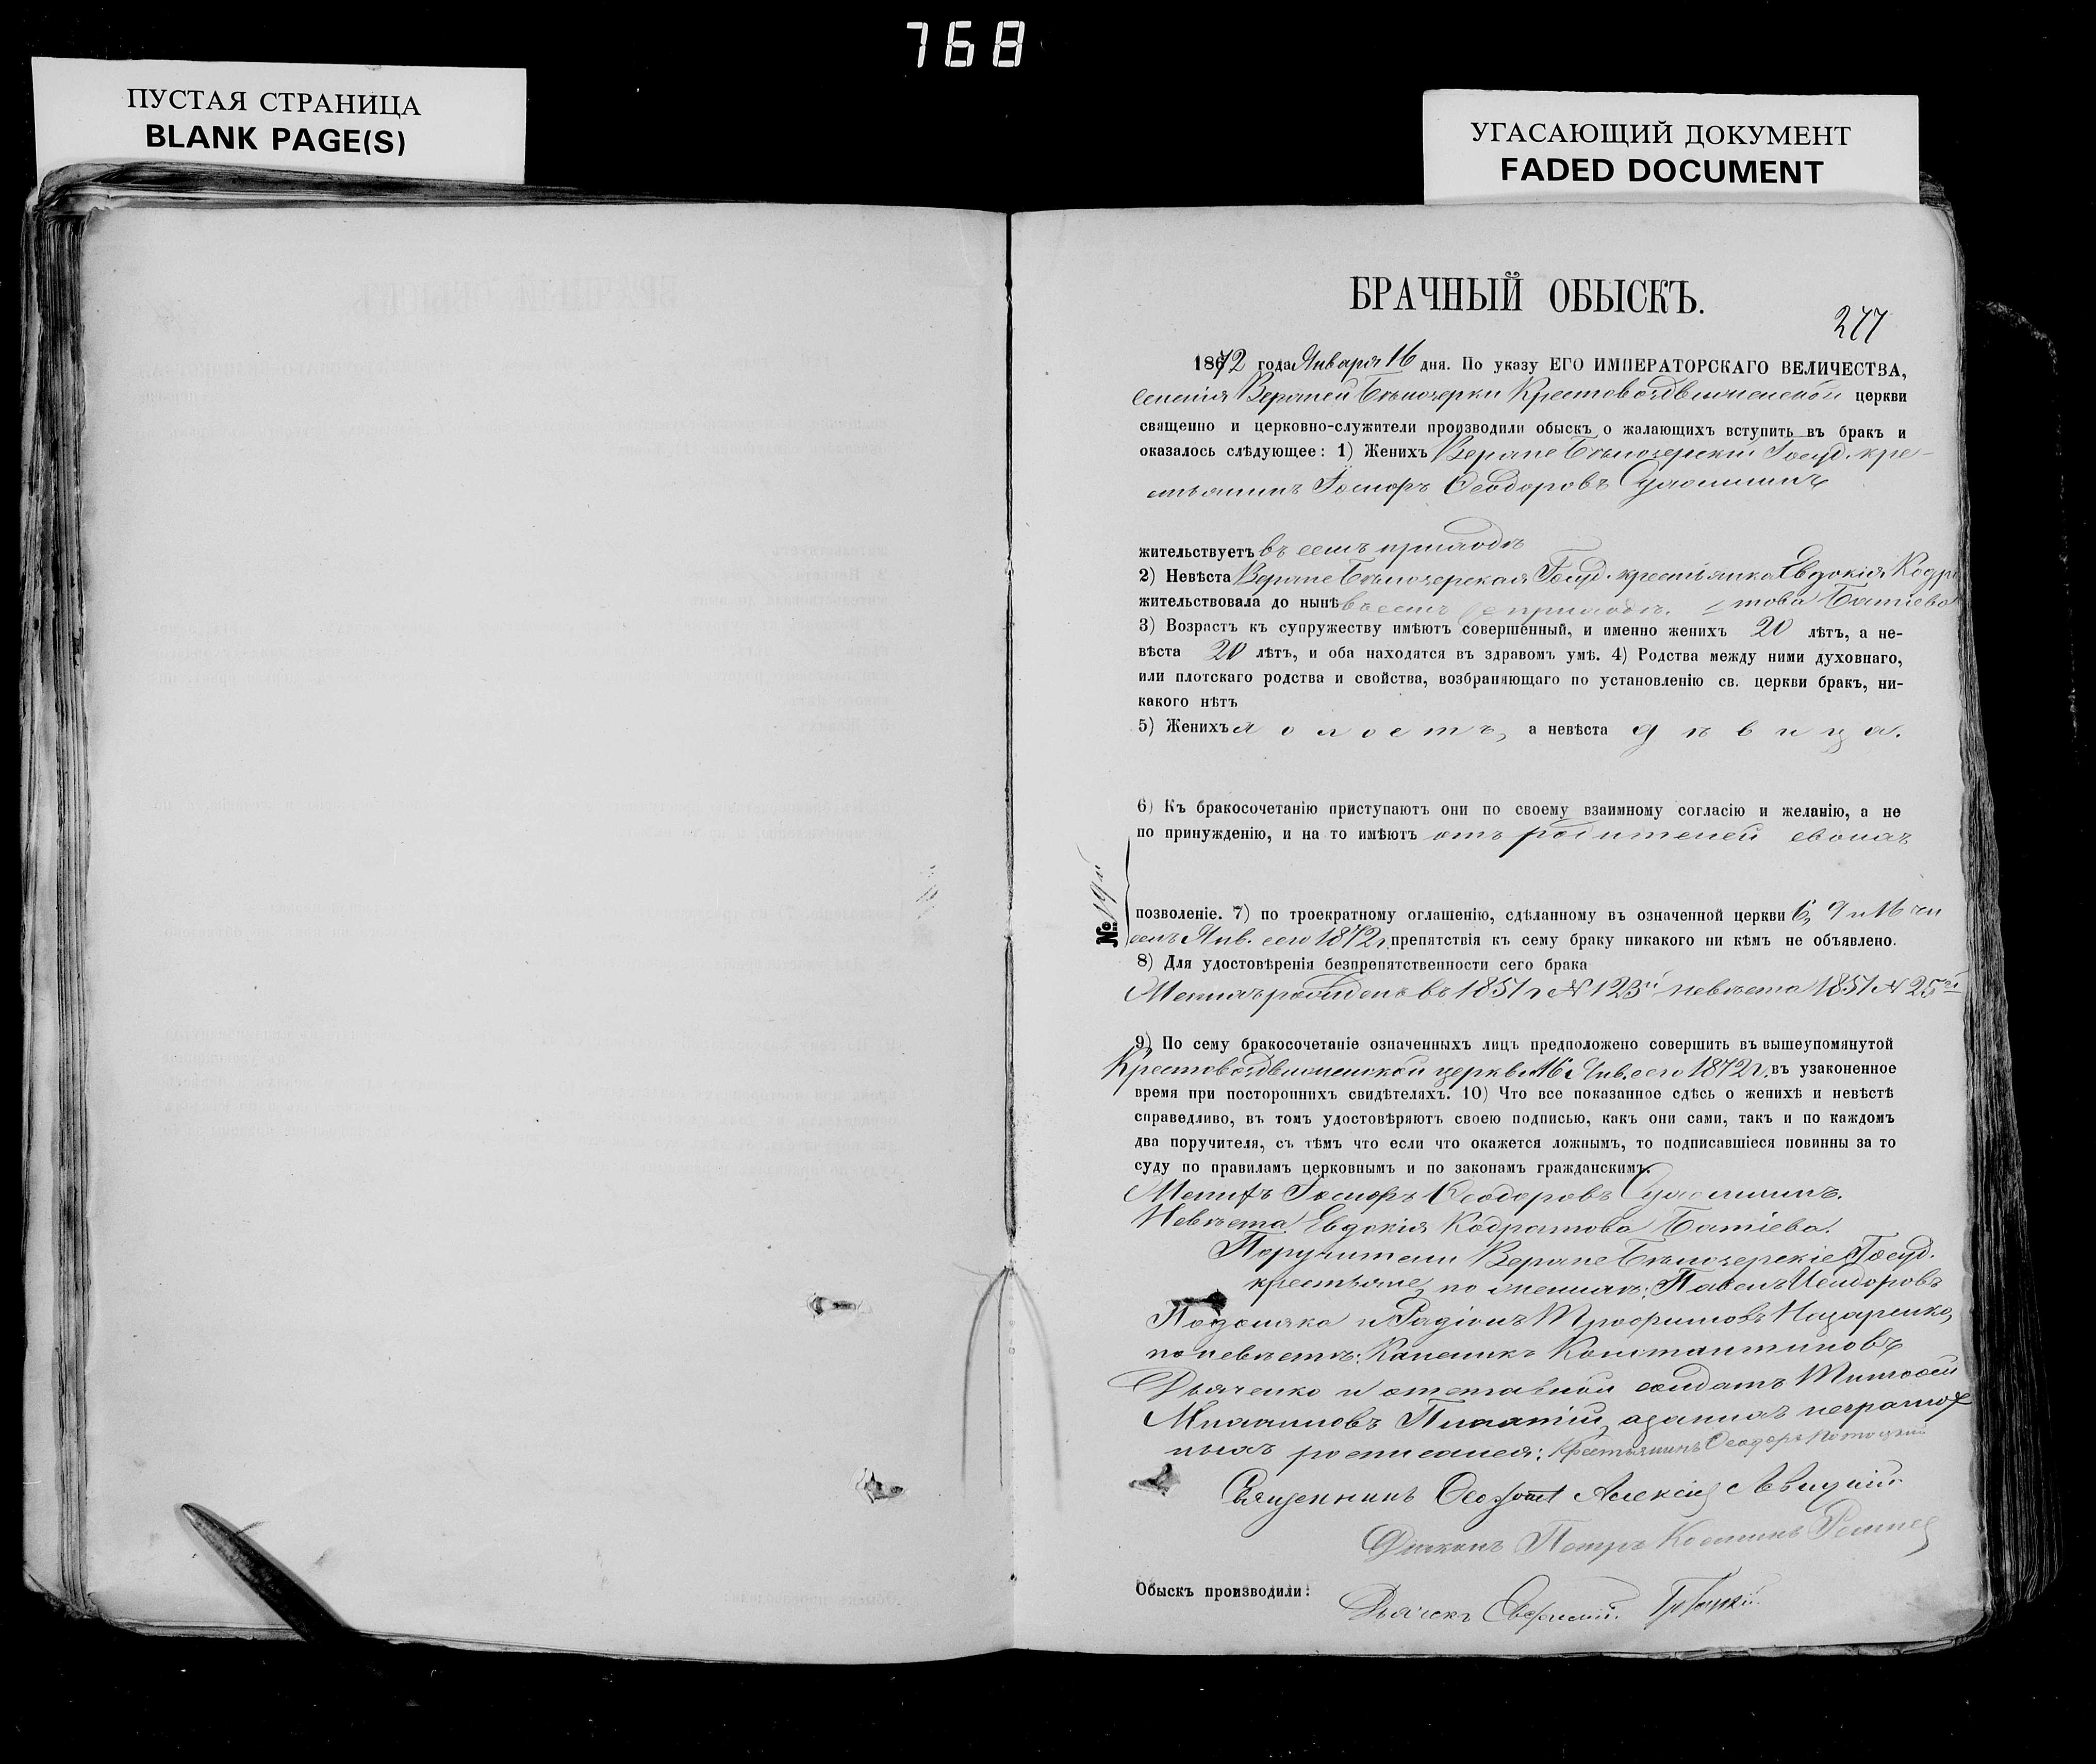 768
ПУСТАЯ СТРАНИЦА
BLANK PAGE(S)
УГАСАЮЩИЙ ДОКУМЕНТ
FADED DOCUMENT
БРАЧНЫЙ ОБЫСКЪ.
277
1872 года Января 16 дня. По указу ЕГО ИМПЕРАТОРСКАГО ВЕЛИЧЕСТВА,
селенія Верхней Бѣлозерки Крестовоздвиженской церкви
священно и церковно-служители производили обыскъ о жалающихъ вступить въ бракъ и
оказалось слѣдующее: 1) Женихъ Верхне Бѣлозерскій Госуд. кре-
стьянинъ Ѳеодоровъ
жительствуетъ въ семъ приходѣ
2) Невѣста Верхне Бѣлозерская Госуд. крестьянка Евдокія Кодра
жительствовала до нынѣ въ семъ же приходѣ. това Батіева
3) Возрастъ къ супружеству имѣютъ совершенный, и именно женихъ 20 лѣтъ, а не-
вѣста 20 лѣтъ, и оба находятся въ здравомъ умѣ. 4) Родства между ними духовнаго,
или плотскаго родства и свойства, возбраняющаго по установленію св. церкви бракъ, ни-
какого нѣтъ
5) Женихъ холостъ, а невѣста дѣвица.
6) Къ бракосочетанію приступаютъ они по своему взаимному согласію и желанію, а не
по принужденію, и на то имѣютъ отъ родителей своихъ
№ 19й
позволеніе. 7) по троекратному оглашенію, сдѣланному въ означенной церкви 6, 9 и 16 чи
селъ Янв. сего 1872 г. препятствія къ сему браку никакого ни кѣмъ не объявлено.
8) Для удостовѣренія безпрепятственности сего брака
Женихъ рожденъ въ 1851 г № 123й невѣста 1851 № 25й
9) По сему бракосочетаніе означенныхъ лицъ предположено совершить въ вышеупомянутой
Крестовоздвиженской церкви 16 Янв. сего 1872 г. въ узаконенное
время при постороннихъ свидѣтеляхъ. 10) Что все показанное сдѣсь о женихѣ и невѣстѣ
справедливо, въ томъ удостовѣряютъ своею подписью, какъ они сами, такъ и по каждомъ
два поручителя, съ тѣмъ что если что окажется ложнымъ, то подписавшіеся повинны за то
суду по правиламъ церковнымъ и по законамъ гражданскимъ.
Женихъ Ѳеодоровъ
Невѣста Евдокія Кодратова Батіева.
Поручители Верхне Бѣлозерскіе Госуд.
крестьяне, по женихѣ: Павелъ Исидоровъ
и Радіонъ Трофимовъ Назаренко,
по невѣстѣ: Каленикъ Константиновъ
Дьяченко и отставной солдатъ Тимофей
а за нихъ неграмот
ныхъ росписался: Крестьянинъ Ѳеодоръ
Священникъ Алексій
Діаконъ Петръ
Обыскъ производили:
Дьячекъ